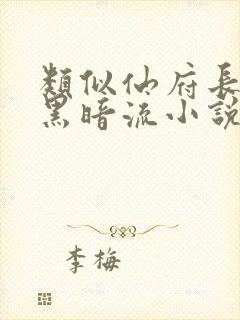 類似仙府長
黑暗流小說
李梅